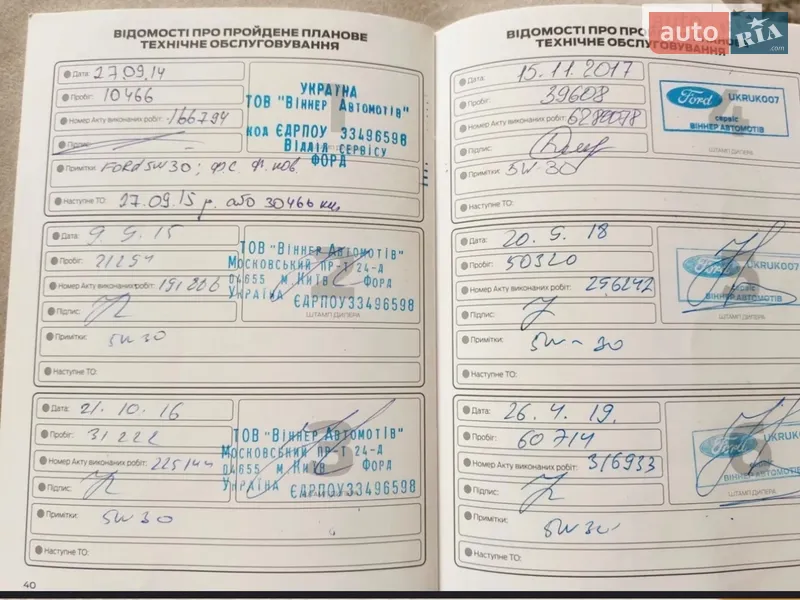 ВІДОМОСТІ ПРО ПРОЙДЕНЕ ПЛАНОВЕ
ТЕХНІЧНЕ ОБСЛУГОВУВАННЯ
Дата: 27.09.14
Пробіг: 10466
Номер Акту виконаних робіт: 166794
Підпис:
УКРАЇНА
ТОВ "ВІННЕР АВТОМОТІВ"
КОД ЄДРПОУ 33496598
ВІДДІЛ СЕРВІСУ
ФОРД
Примітки: FORD 5W30; Ф.С. Ф. пов.
Наступне ТО: 27.09.15 р. або 30466 км.
Дата: 9.9.15
Пробіг: 21254
Номер Акту виконаних робіт: 191206
Підпис:
ТОВ "ВІННЕР АВТОМОТІВ"
МОСКОВСЬКИЙ ПР-Т 24-А
04655 М. КИЇВ ФОРД
УКРАЇНА ЄДРПОУ33496598
ШТАМП ДИЛЕРА
Примітки: 5W30
Наступне ТО:
Дата: 21.10.16
Пробіг: 31222
Номер Акту виконаних робіт: 225144
Підпис:
ТОВ "ВІННЕР АВТОМОТІВ"
МОСКОВСЬКИЙ ПР-Т 24-А
04655 М. КИЇВ ФОРД
УКРАЇНА ЄДРПОУ33496598
Примітки: 5W30
Наступне ТО:
40
ВІДОМОСТІ ПРО ПРО
ТЕХНІЧНЕ ОБСЛУГОВУВАННЯ
auto RIA .com
Дата: 15.11.2017
Пробіг: 39608
Номер Акту виконаних робіт: 6280098
Підпис:
Ford UKRUK007
сервіс
ВІННЕР АВТОМОТІВ
4
ШТАМП ДИЛЕРА
Примітки: 5W-30
Наступне ТО:
Дата: 20.9.18
Пробіг: 50320
Номер Акту виконаних робіт: 296242
Підпис:
Ford UKRUK007
сервіс
ВІННЕР АВТОМОТІВ
ШТАМП ДИЛЕРА
Примітки: 5W-30
Наступне ТО:
Дата: 26.4.19.
Пробіг: 60714
Номер Акту виконаних робіт: 316933
Підпис:
Ford UKRUK
сервіс
ВІННЕР АВТОМОТІВ
ШТАМП ДИЛЕРА
Примітки: 5W30
Наступне ТО: